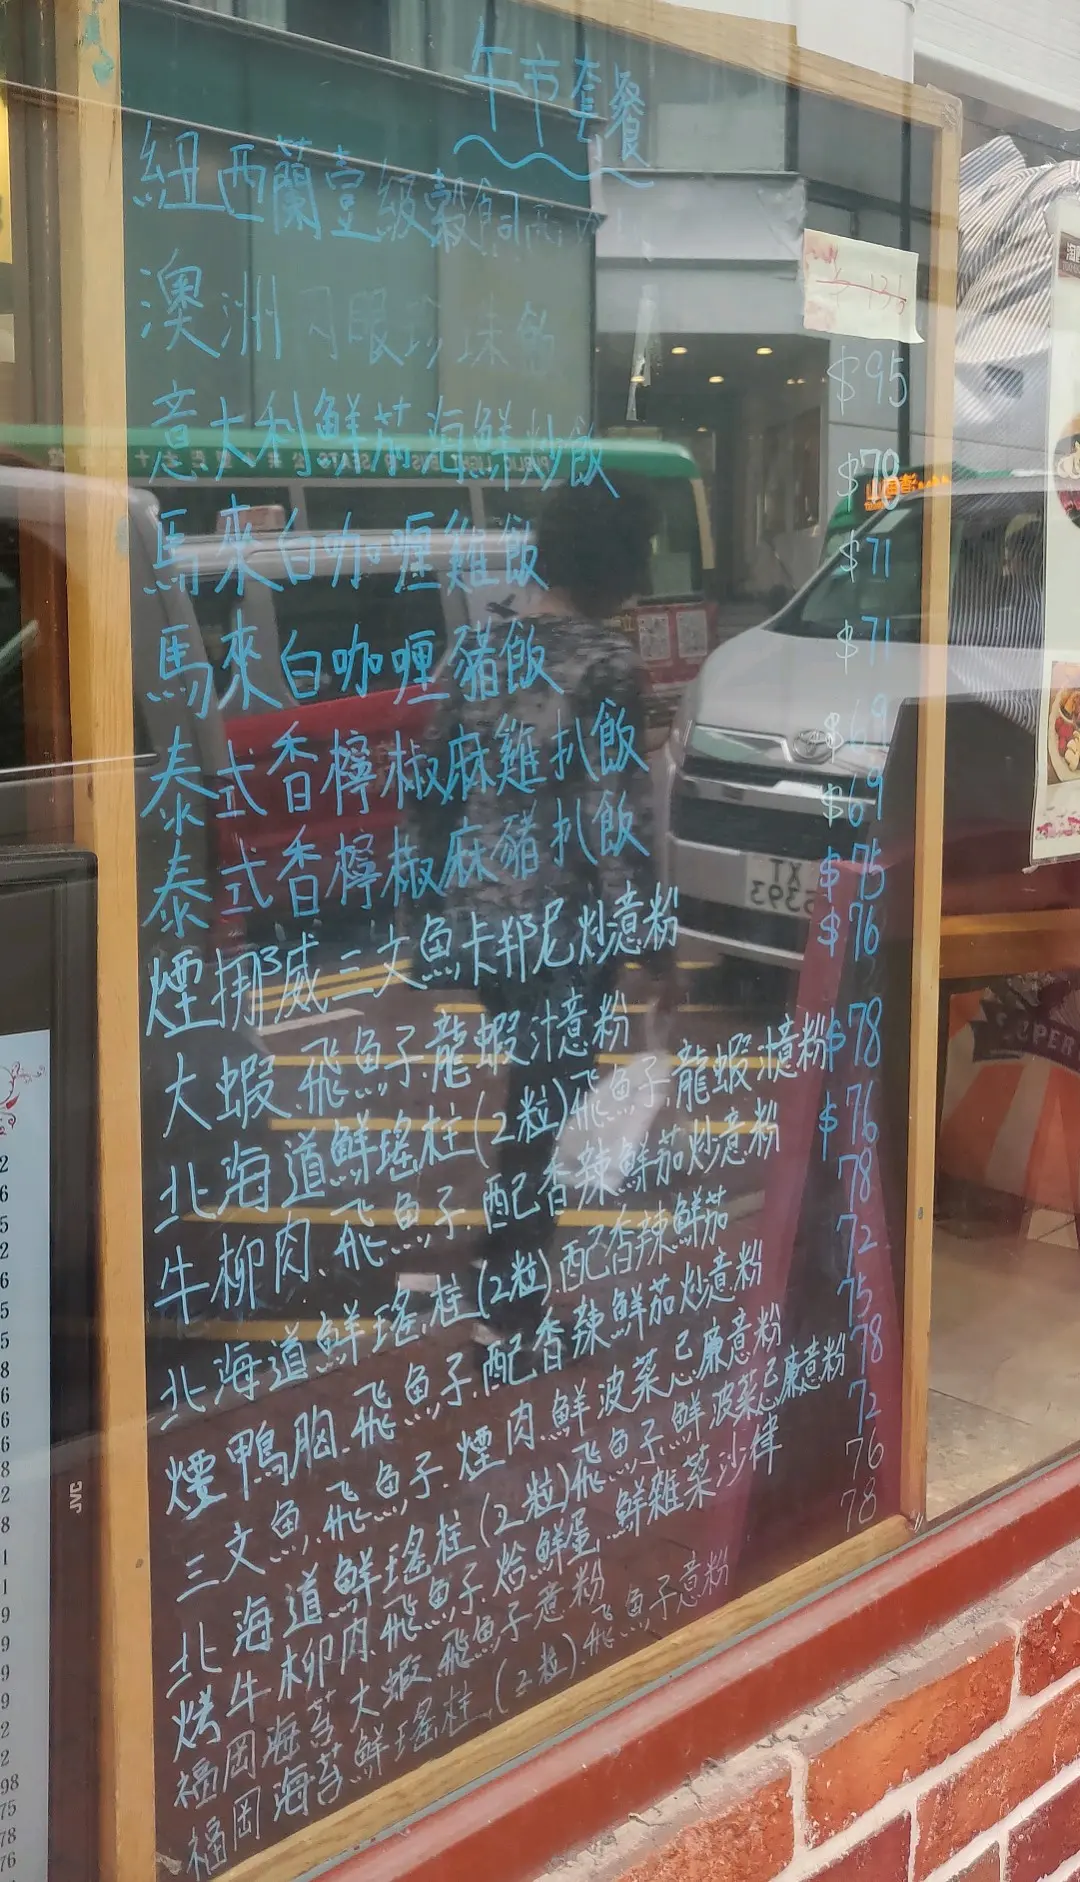 午市套餐
紐西蘭壹級穀飼
$95
澳洲肉眼珍珠飯
$78
意大利鮮茄海鮮炒飯
$71
馬來白咖喱雞飯
$71
馬來白咖喱豬飯
$69
泰式香檸椒麻雞扒飯
$69
泰式香檸椒麻豬扒飯
$75
煙挪威三文魚卡邦尼炒意粉
$76
大蝦.飛魚子.龍蝦汁意粉
北海道鮮瑤柱(2粒)飛魚子.龍蝦汁意粉
$78
牛柳肉.飛魚子.配香辣鮮茄炒意粉
$76
北海道鮮瑤柱(2粒).配香辣鮮茄
78
煙鴨胸.飛魚子.配香辣鮮茄炒意粉
72
三文魚.飛魚子.煙肉.鮮波菜忌廉意粉
75
北海道鮮瑤柱(2粒)飛魚子.鮮波菜忌廉意粉
78
烤牛柳肉.飛魚子.烚鮮蛋.鮮雜菜沙律
72
福岡海苔大蝦.飛魚子意粉
76
福岡海苔鮮瑤柱.(2粒).飛魚子意粉
78
PUBLIC LIGHT BUS
SEATS
XT
5393
JVC
98
75
78
76